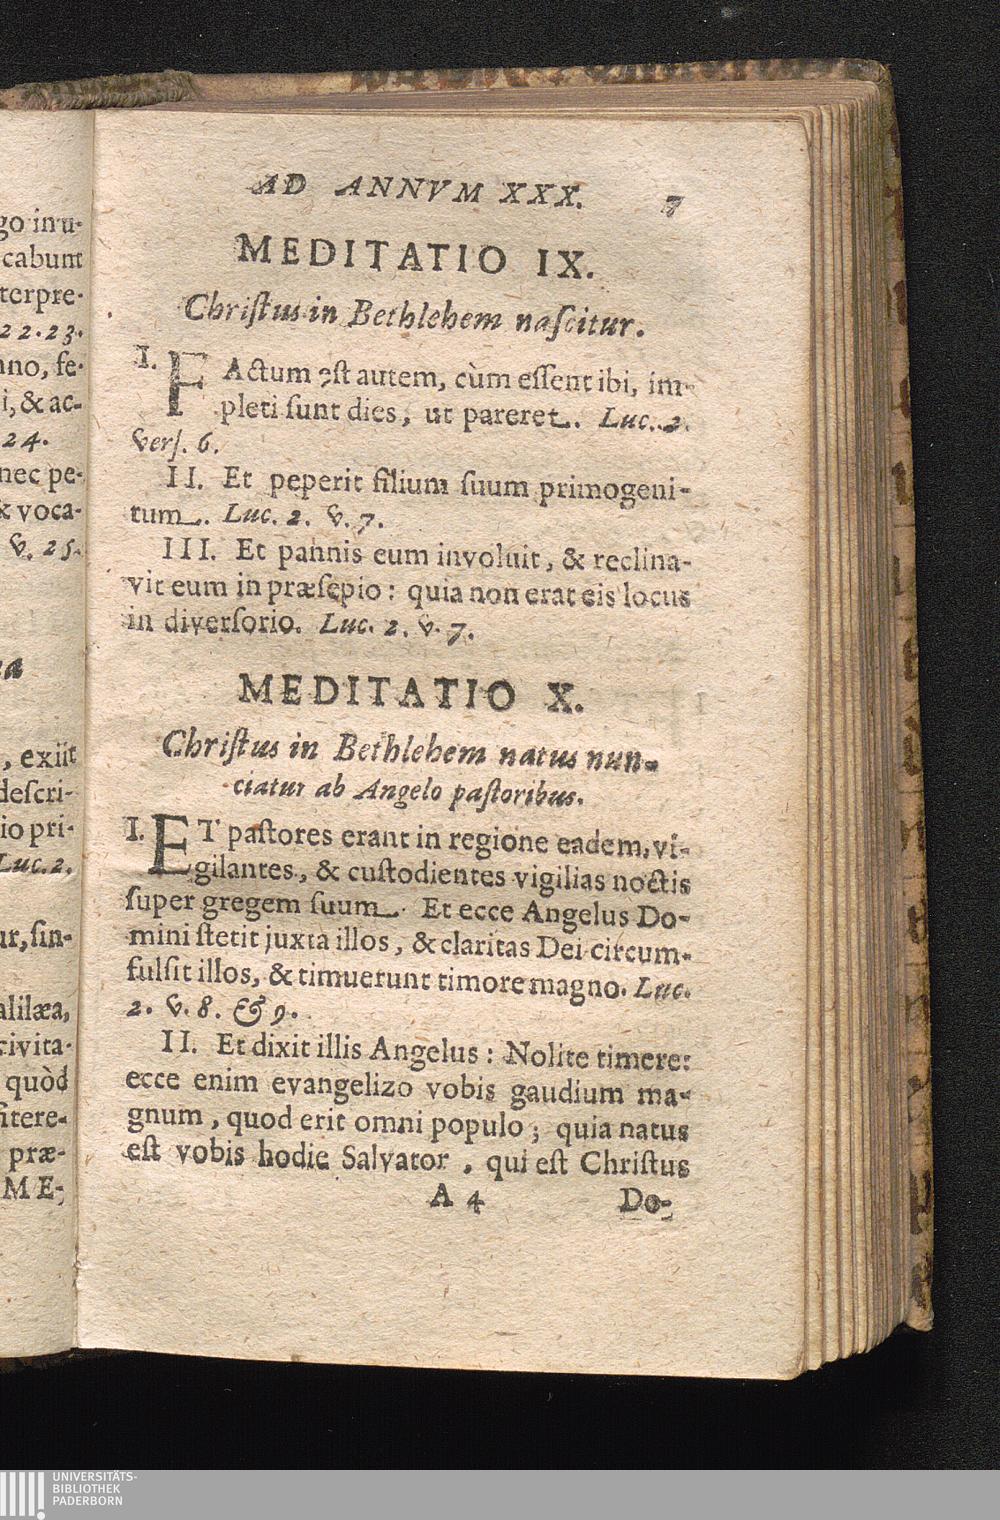 go in u-
cabunt
terpre-
22. 23.
nno, fe-
i, & ac-
24.
nec pe-
& voca-
v. 25.
ea
, exiit
descri-
io pri-
Luc. 2.
ur, sin-
alilæa,
civita-
quòd
fitere-
præ-
ME-
AD ANNVM XXX. 7
MEDITATIO IX.
Christus in Bethlehem nascitur.
I. FActum est autem, cùm essent ibi, im-
pleti sunt dies, ut pareret. Luc. 2.
vers. 6.
II. Et peperit filium suum primogeni-
tum. Luc. 2. v. 7.
III. Et pannis eum involuit, & reclina-
vit eum in præsepio: quia non erat eis locus
in diversorio. Luc. 2. v. 7.
MEDITATIO X.
Christus in Bethlehem natus nun-
ciatur ab Angelo pastoribus.
I. ET pastores erant in regione eadem, vi-
gilantes, & custodientes vigilias noctis
super gregem suum. Et ecce Angelus Do-
mini stetit juxta illos, & claritas Dei circum-
fulsit illos, & timuerunt timore magno. Luc.
2. v. 8. & 9.
II. Et dixit illis Angelus: Nolite timere:
ecce enim evangelizo vobis gaudium ma-
gnum, quod erit omni populo; quia natus
est vobis hodie Salvator, qui est Christus
A 4 Do-
UNIVERSITÄTS-
BIBLIOTHEK
PADERBORN